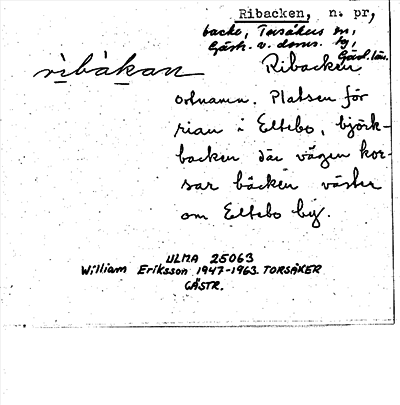 Ribacken, n. pr,
backe, Torsåkers sn,
Gästr. v. doms. by,
Gävl. län.
ribakan Ribacken
ortnamn. Platsen för
rian i Eltebo, björk-
backen där vägen kor-
sar bäcken väster
om Eltebo by.
ULMA 25063
William Eriksson 1947-1963. TORSÅKER
GÄSTR.